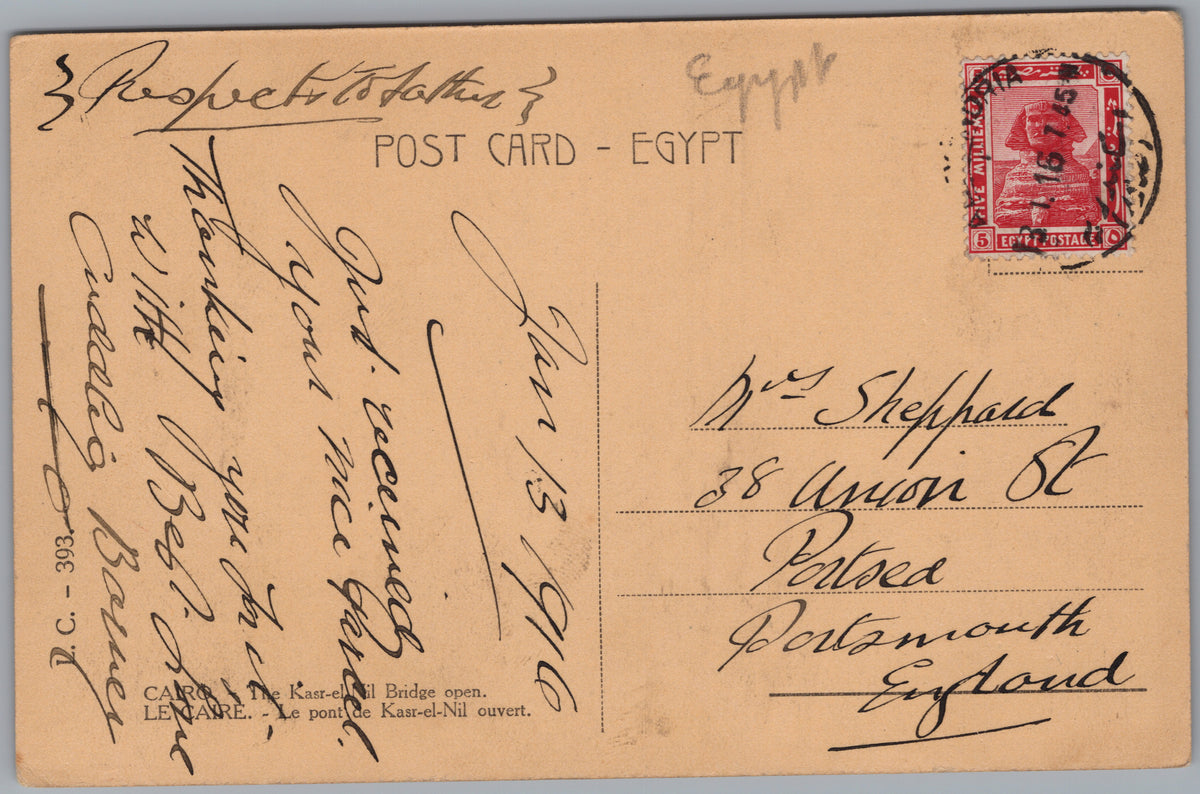 Egypt
{ Respects to father }
POST CARD - EGYPT
Jan 13 1916
Just received
your nice Card.
Thanking you
With Best Love
Mrs Sheppard
38 Union St
Portsea
Portsmouth
England
CAIRO. - The Kasr-el-Nil Bridge open.
LE CAIRE. - Le pont de Kasr-el-Nil ouvert.
C. - 393.
FIVE MILLIEMES
5 EGYPT POSTAGE ٥
1.16 7 45